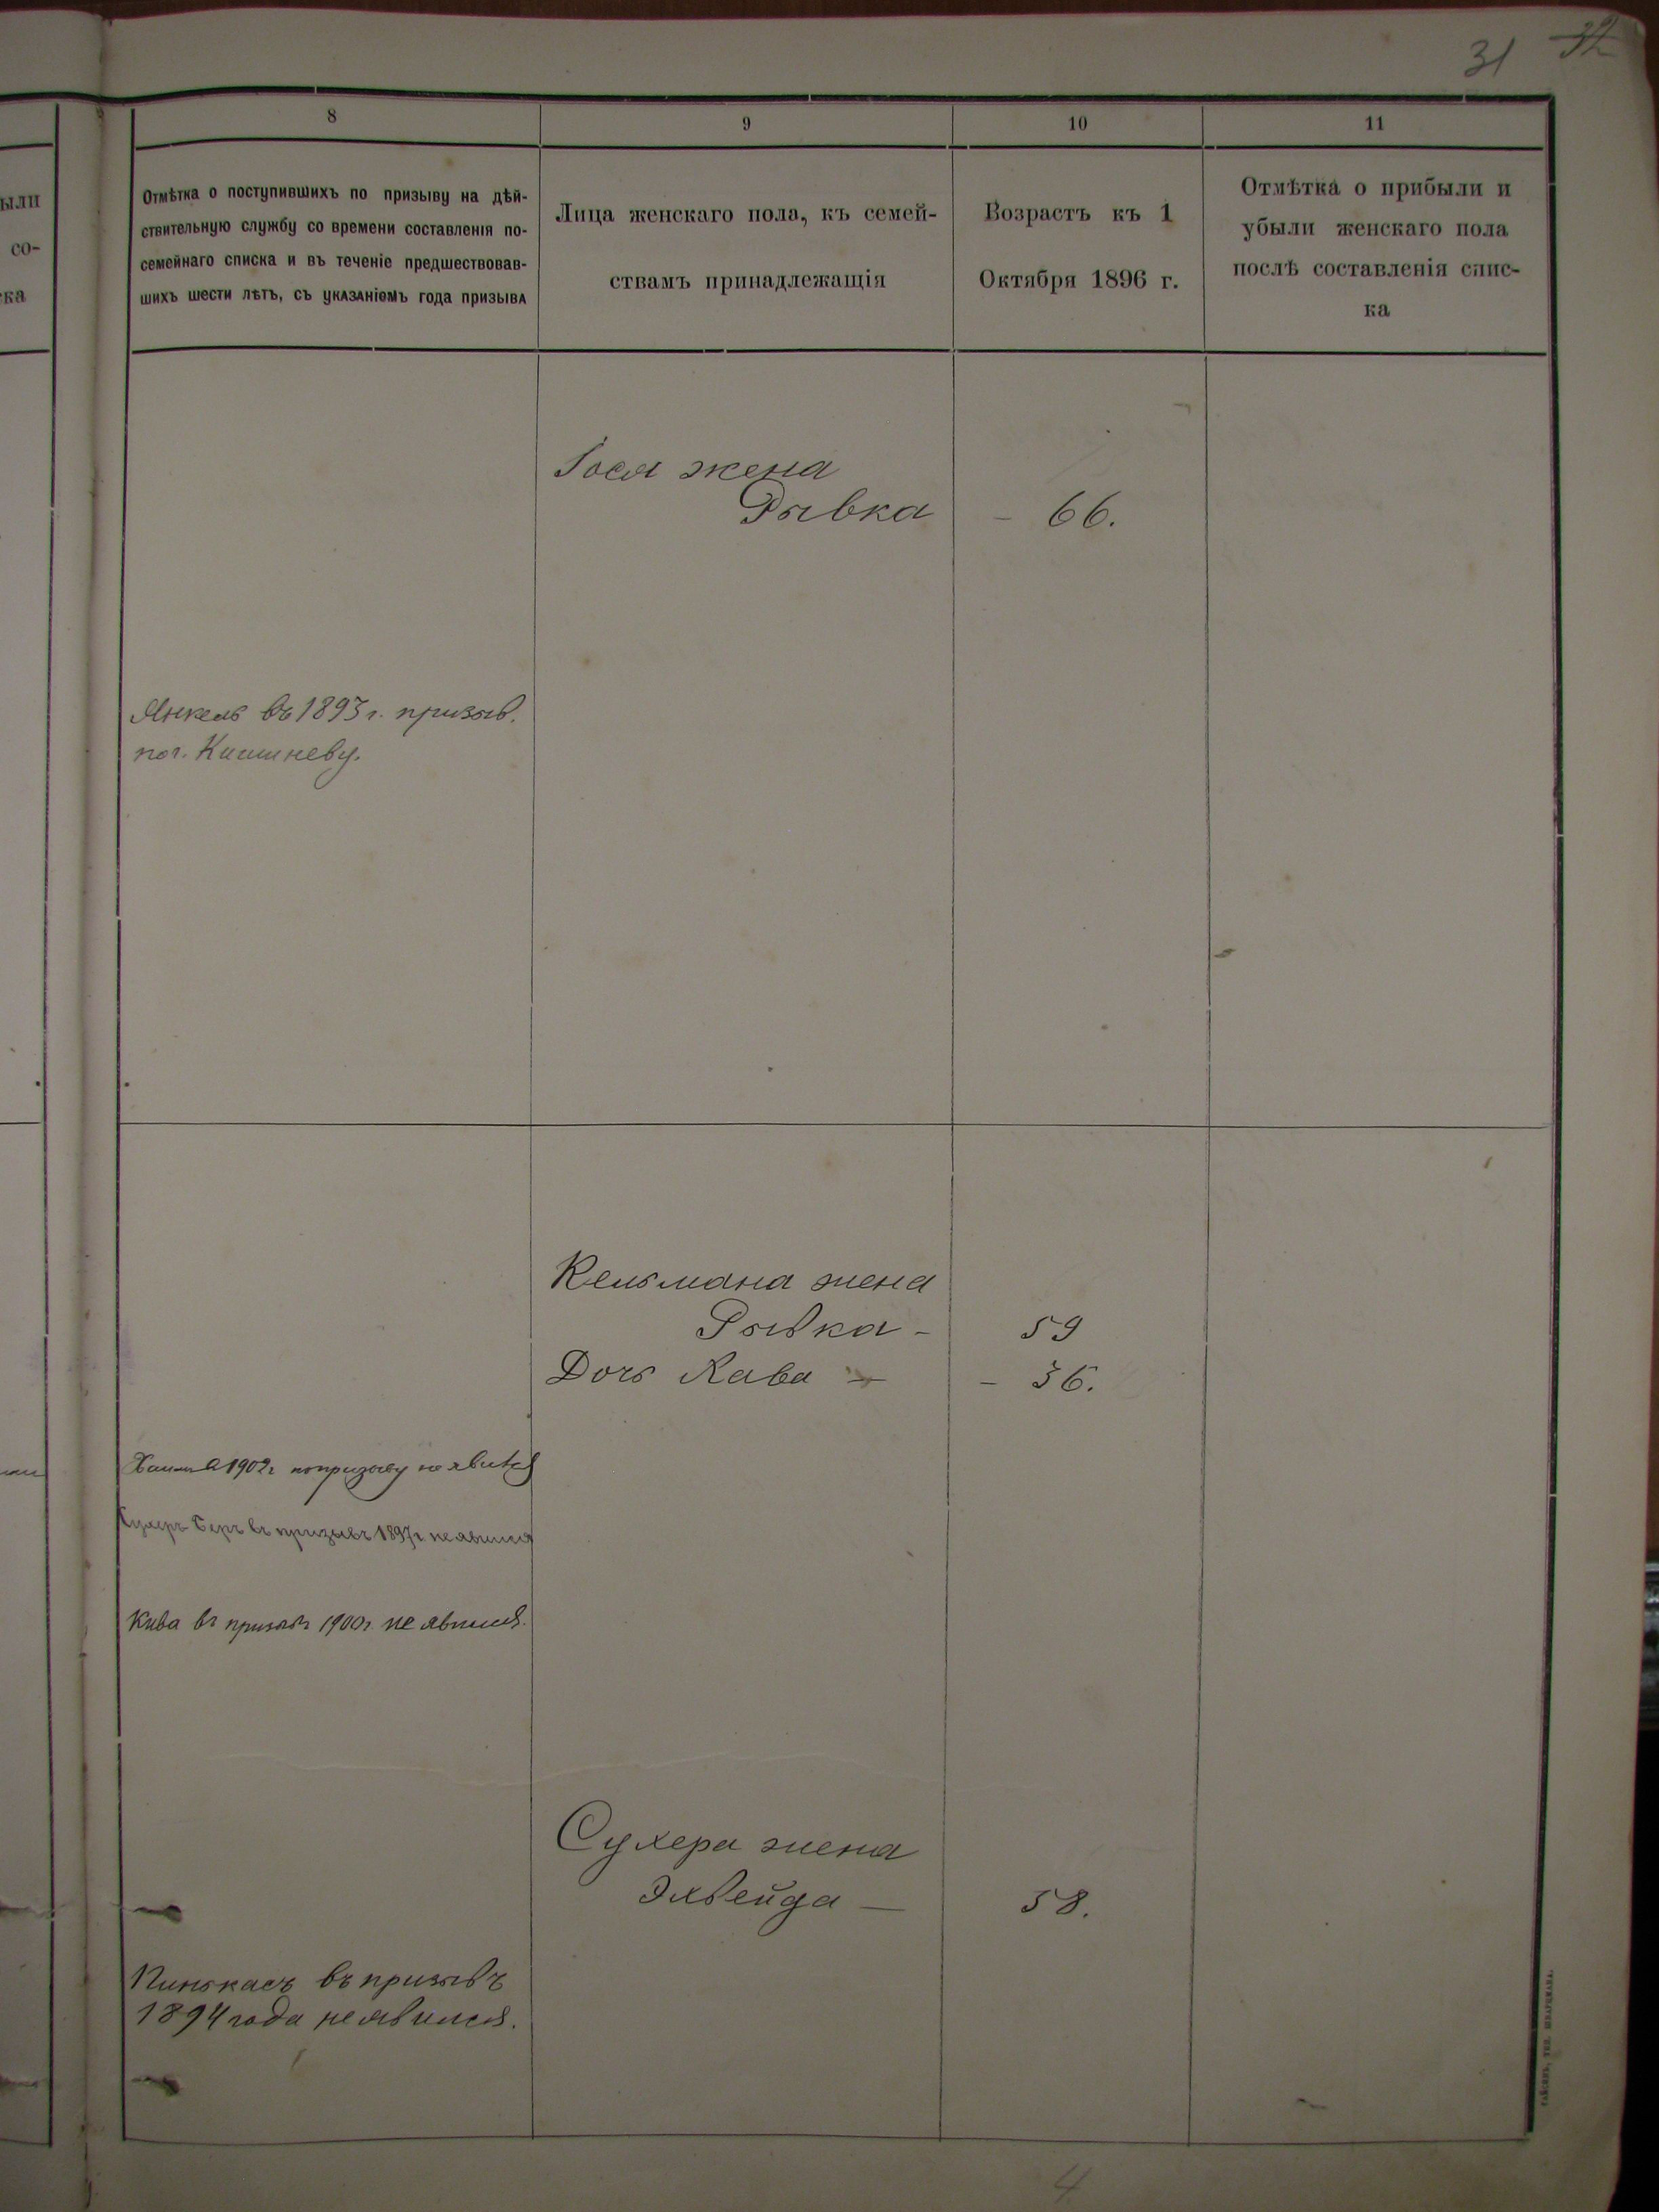 31 32
8
9
10
11
ыли
со-
ка
Отмѣтка о поступившихъ по призыву на дѣй-
ствительную службу со времени составленія по-
семейнаго списка и въ теченіе предшествовав-
шихъ шести лѣтъ, съ указаніемъ года призыва
Лица женскаго пола, къ семей-
ствамъ принадлежащія
Возрастъ къ 1
Октября 1896 г.
Отмѣтка о прибыли и
убыли женскаго пола
послѣ составленія спис-
ка
жена
Рывка - 66.
Янкель въ 1893 г. призыв.
по г. Кишиневу.
Кельмана жена
Рывка - 59
Дочь Хава - - 36.
Хаим 1902 г по призыву не явился
въ призывъ 1897 г. не явился
Кива въ призывъ 1900 г. не явился.
Сухера жена
58.
Пинькасъ въ призывъ
1894 года не явился.
4